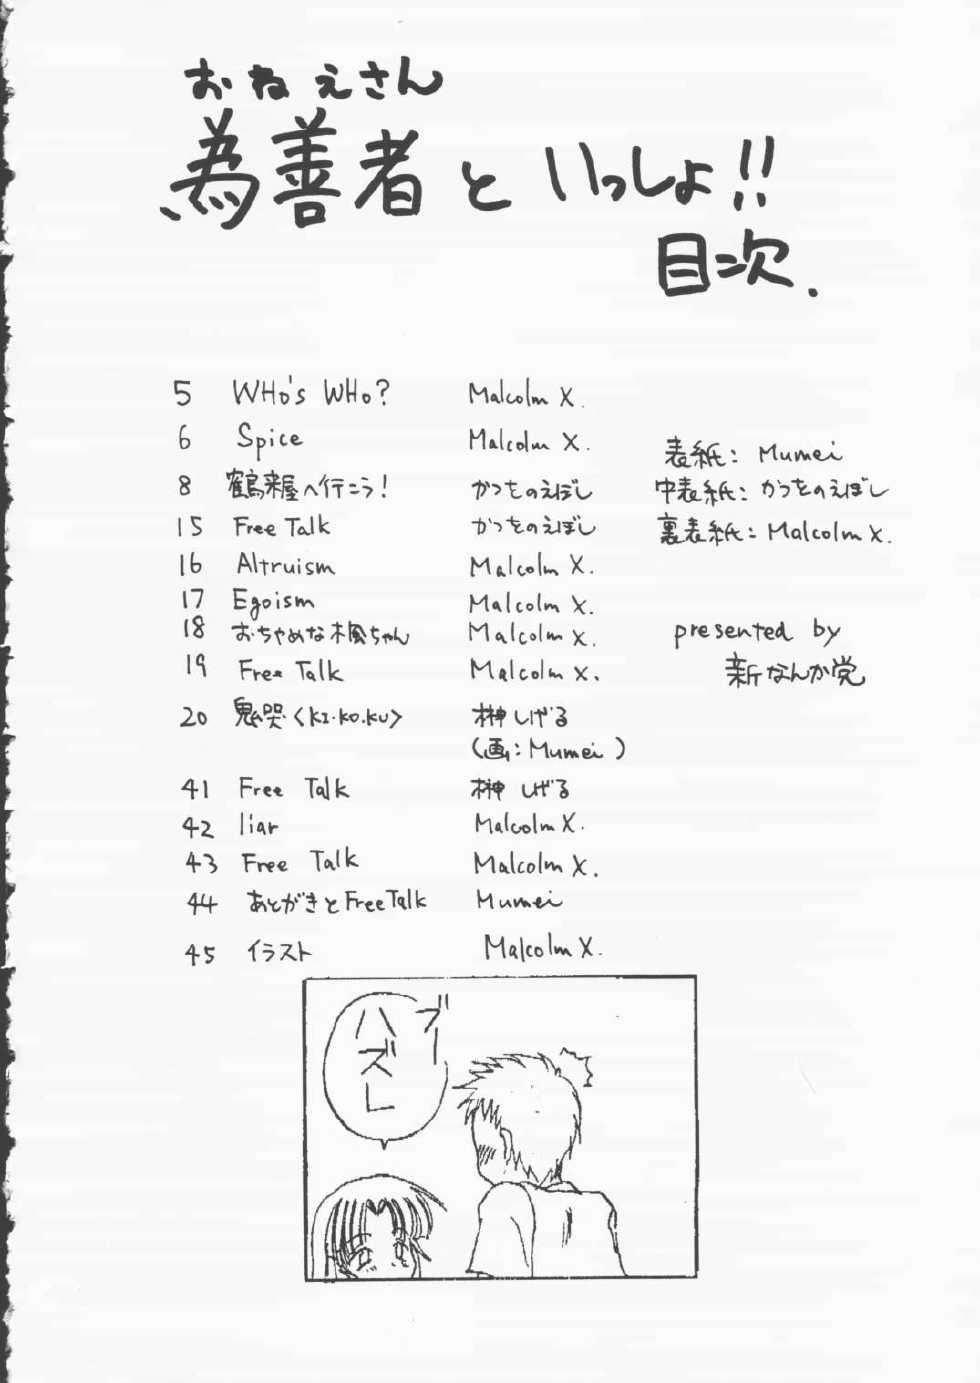 おねえさん
為善者といっしょ!!
目次.
5 WHo's WHo? Malcolm X.
6 Spice Malcolm X.
8 鶴来屋へ行こう! かつをのえぼし
15 Free Talk かつをのえぼし
16 Altruism Malcolm X.
17 Egoism Malcolm X.
18 おちゃめな楓ちゃん Malcolm X.
19 Free Talk Malcolm X.
20 鬼哭〈KI・KO・KU〉 榊しげる
(画:Mumei)
41 Free Talk 榊しげる
42 liar Malcolm X.
43 Free Talk Malcolm X.
44 あとがきとFree Talk Mumei
45 イラスト Malcolm X.
表紙: Mumei
中表紙: かつをのえぼし
裏表紙: Malcolm X.
presented by
新なんか党
ブー
ハズレ